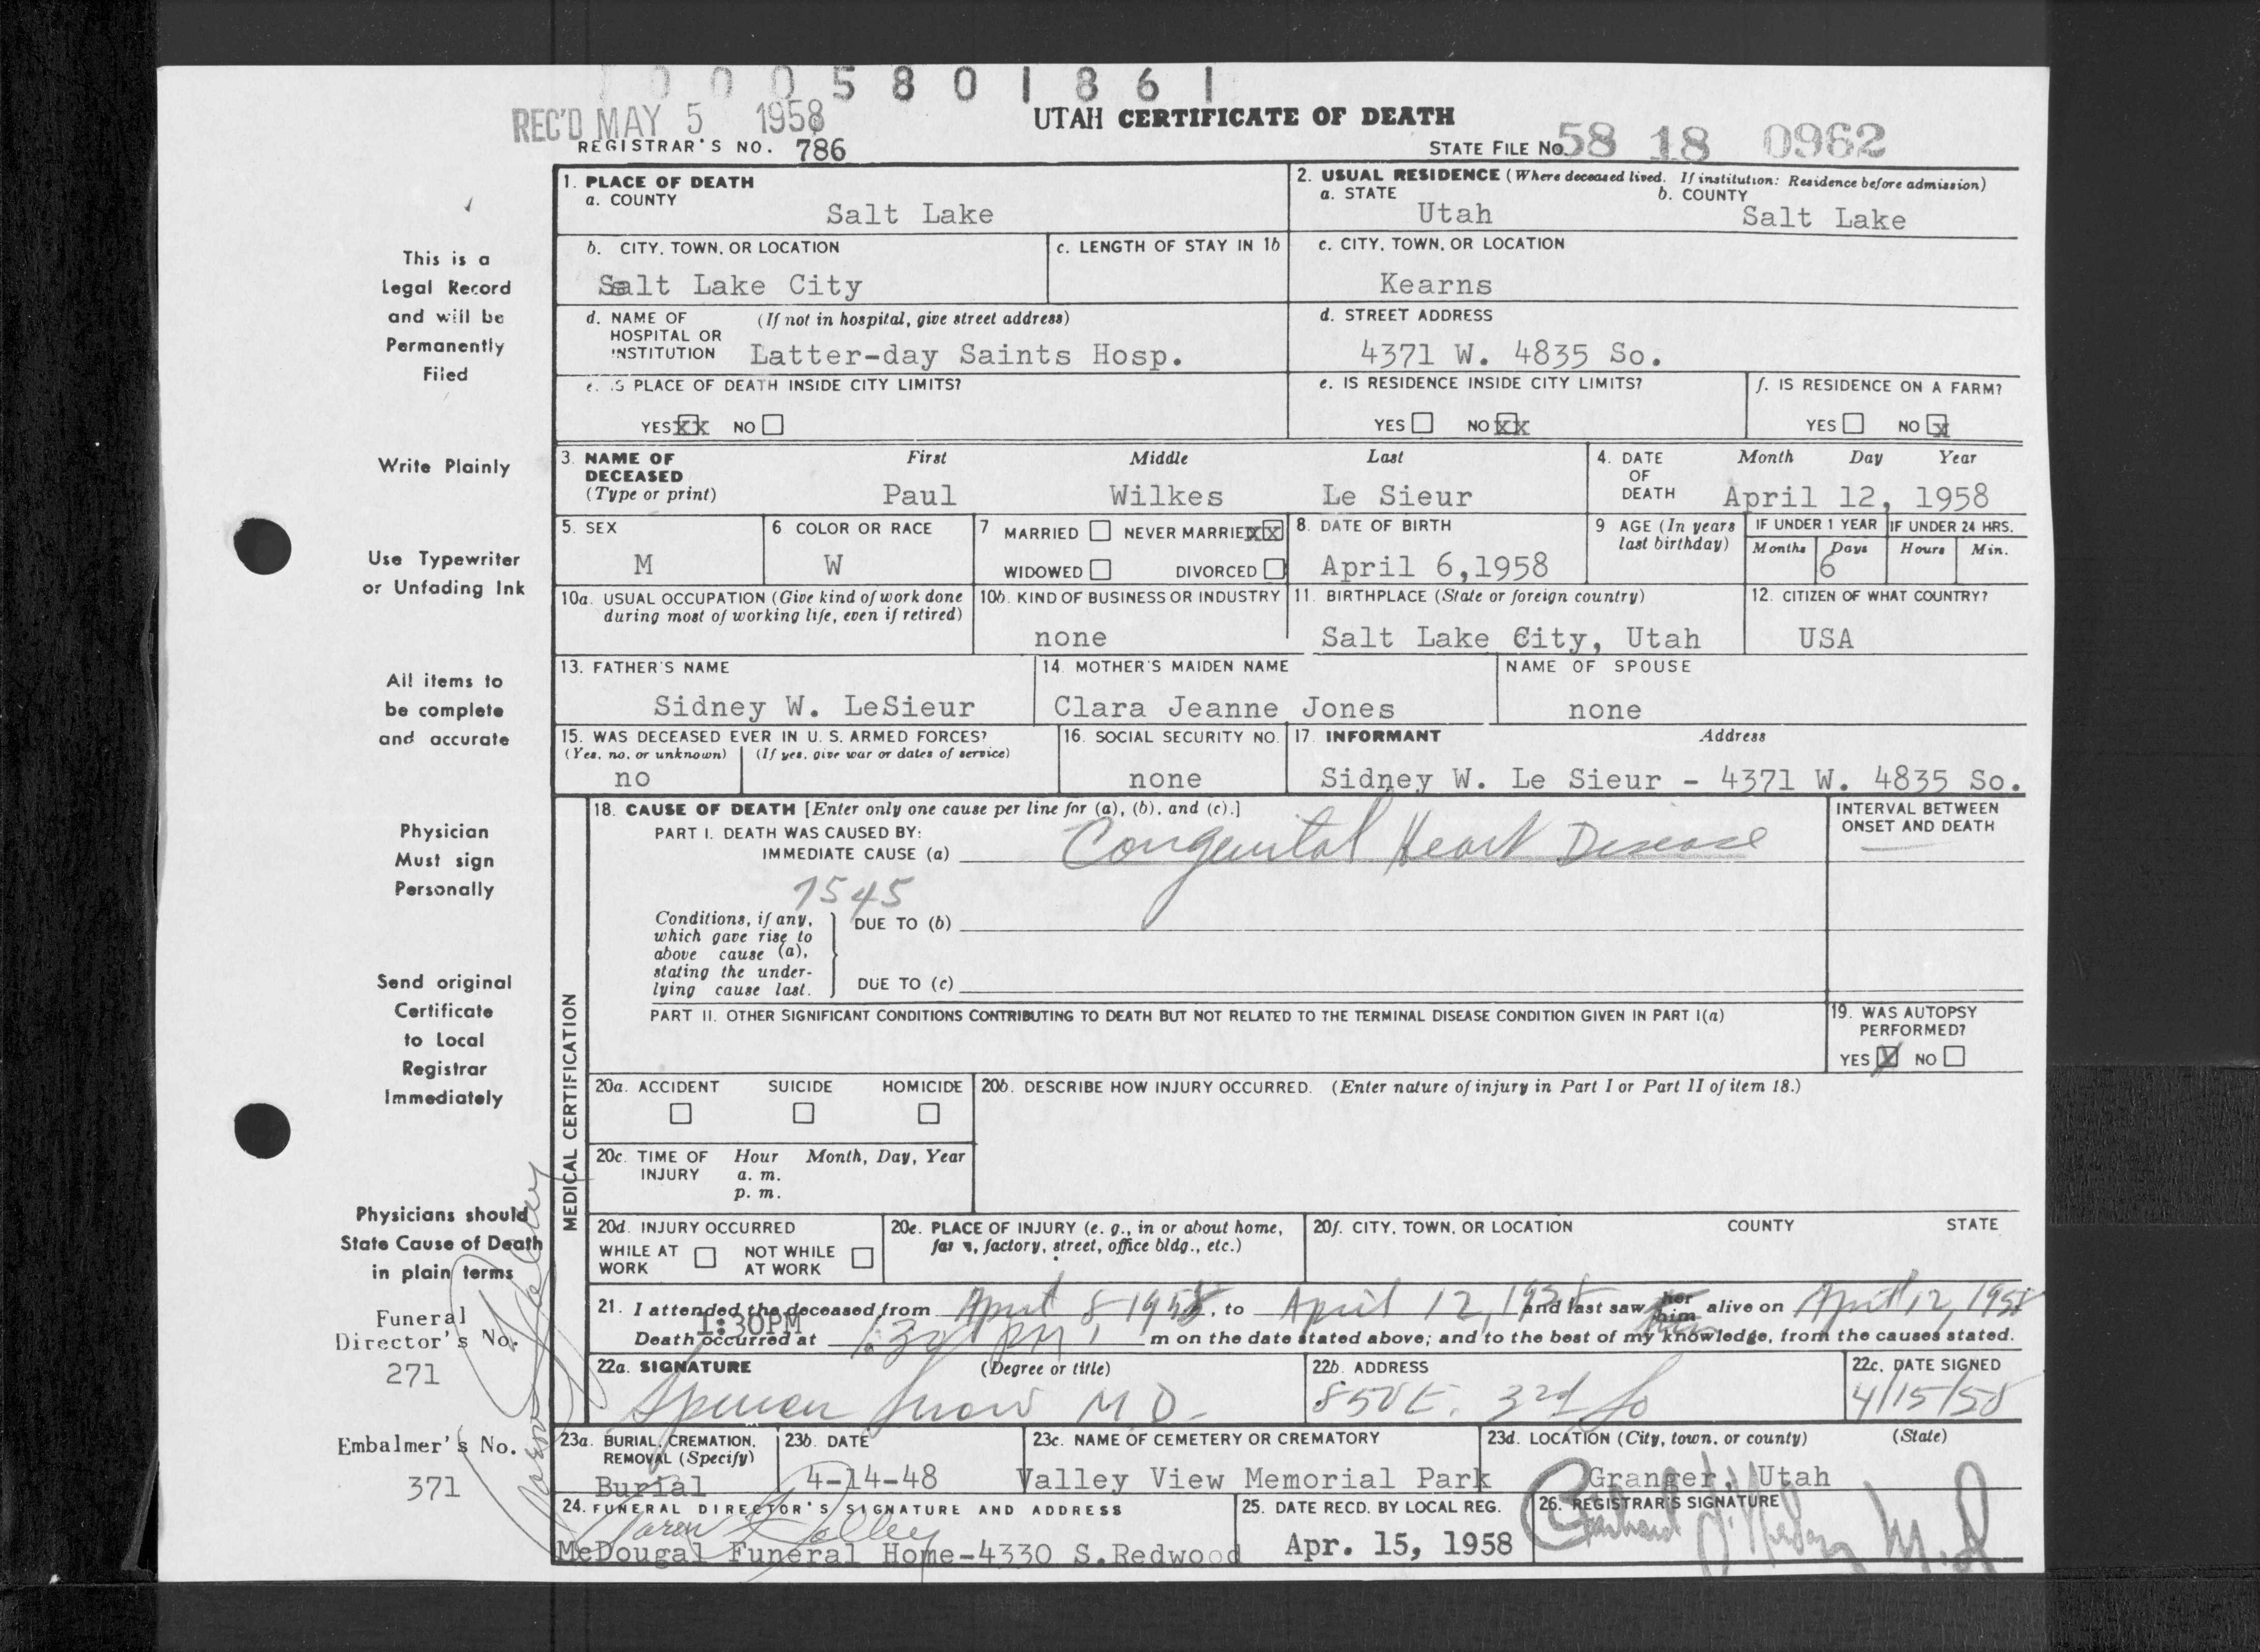 0005801861
REC'D MAY 5 1958
UTAH CERTIFICATE OF DEATH
REGISTRAR'S NO. 786
STATE FILE No. 58 18 0962
This is a
Legal Record
and will be
Permanently
Filed
Write Plainly
Use Typewriter
or Unfading Ink
All items to
be complete
and accurate
Physician
Must sign
Personally
Send original
Certificate
to Local
Registrar
Immediately
Physicians should
State Cause of Death
in plain terms
Funeral
Director's No.
271
Embalmer's No.
371
1. PLACE OF DEATH
a. COUNTY
Salt Lake
2. USUAL RESIDENCE (Where deceased lived. If institution: Residence before admission)
a. STATE b. COUNTY
Utah Salt Lake
b. CITY, TOWN, OR LOCATION
Salt Lake City
c. LENGTH OF STAY IN 1b
c. CITY, TOWN, OR LOCATION
Kearns
d. NAME OF (If not in hospital, give street address)
HOSPITAL OR
INSTITUTION Latter-day Saints Hosp.
d. STREET ADDRESS
4371 W. 4835 So.
e. IS PLACE OF DEATH INSIDE CITY LIMITS?
YES XX NO
e. IS RESIDENCE INSIDE CITY LIMITS?
YES NO XX
f. IS RESIDENCE ON A FARM?
YES NO X
3. NAME OF DECEASED
(Type or print)
First Middle Last
Paul Wilkes Le Sieur
4. DATE OF DEATH
Month Day Year
April 12, 1958
5. SEX
M
6. COLOR OR RACE
W
7 MARRIED NEVER MARRIED XX
WIDOWED DIVORCED
8. DATE OF BIRTH
April 6,1958
9 AGE (In years last birthday)
IF UNDER 1 YEAR IF UNDER 24 HRS.
Months Days Hours Min.
6
10a. USUAL OCCUPATION (Give kind of work done
during most of working life, even if retired)
10b. KIND OF BUSINESS OR INDUSTRY
none
11. BIRTHPLACE (State or foreign country)
Salt Lake City, Utah
12. CITIZEN OF WHAT COUNTRY?
USA
13. FATHER'S NAME
Sidney W. LeSieur
14. MOTHER'S MAIDEN NAME
Clara Jeanne Jones
NAME OF SPOUSE
none
15. WAS DECEASED EVER IN U. S. ARMED FORCES?
(Yes, no, or unknown) (If yes, give war or dates of service)
no
16. SOCIAL SECURITY NO.
none
17. INFORMANT Address
Sidney W. Le Sieur - 4371 W. 4835 So.
MEDICAL CERTIFICATION
18. CAUSE OF DEATH [Enter only one cause per line for (a), (b), and (c).]
PART I. DEATH WAS CAUSED BY:
IMMEDIATE CAUSE (a) Congenital Heart Disease
INTERVAL BETWEEN
ONSET AND DEATH
7545
Conditions, if any,
which gave rise to
above cause (a),
stating the under-
lying cause last.
DUE TO (b)
DUE TO (c)
PART II. OTHER SIGNIFICANT CONDITIONS CONTRIBUTING TO DEATH BUT NOT RELATED TO THE TERMINAL DISEASE CONDITION GIVEN IN PART I(a)
19. WAS AUTOPSY
PERFORMED?
YES X NO
20a. ACCIDENT SUICIDE HOMICIDE
20b. DESCRIBE HOW INJURY OCCURRED. (Enter nature of injury in Part I or Part II of item 18.)
20c. TIME OF INJURY
Hour Month, Day, Year
a. m.
p. m.
20d. INJURY OCCURRED
WHILE AT WORK NOT WHILE AT WORK
20e. PLACE OF INJURY (e. g., in or about home,
farm, factory, street, office bldg., etc.)
20f. CITY, TOWN, OR LOCATION COUNTY STATE
21. I attended the deceased from April 8 1958, to April 12, 1958 and last saw her him alive on April 12, 1958
1:30PM
Death occurred at 1:30 PM, m on the date stated above; and to the best of my knowledge, from the causes stated.
22a. SIGNATURE (Degree or title)
Spencer Snow M D.
22b. ADDRESS
850 E. 3rd So
22c. DATE SIGNED
4/15/58
23a. BURIAL, CREMATION,
REMOVAL (Specify)
Burial
23b. DATE
4-14-48
23c. NAME OF CEMETERY OR CREMATORY
Valley View Memorial Park
23d. LOCATION (City, town, or county) (State)
Granger, Utah
24. FUNERAL DIRECTOR'S SIGNATURE AND ADDRESS
McDougal Funeral Home-4330 S.Redwood
25. DATE RECD. BY LOCAL REG.
Apr. 15, 1958
26. REGISTRAR'S SIGNATURE